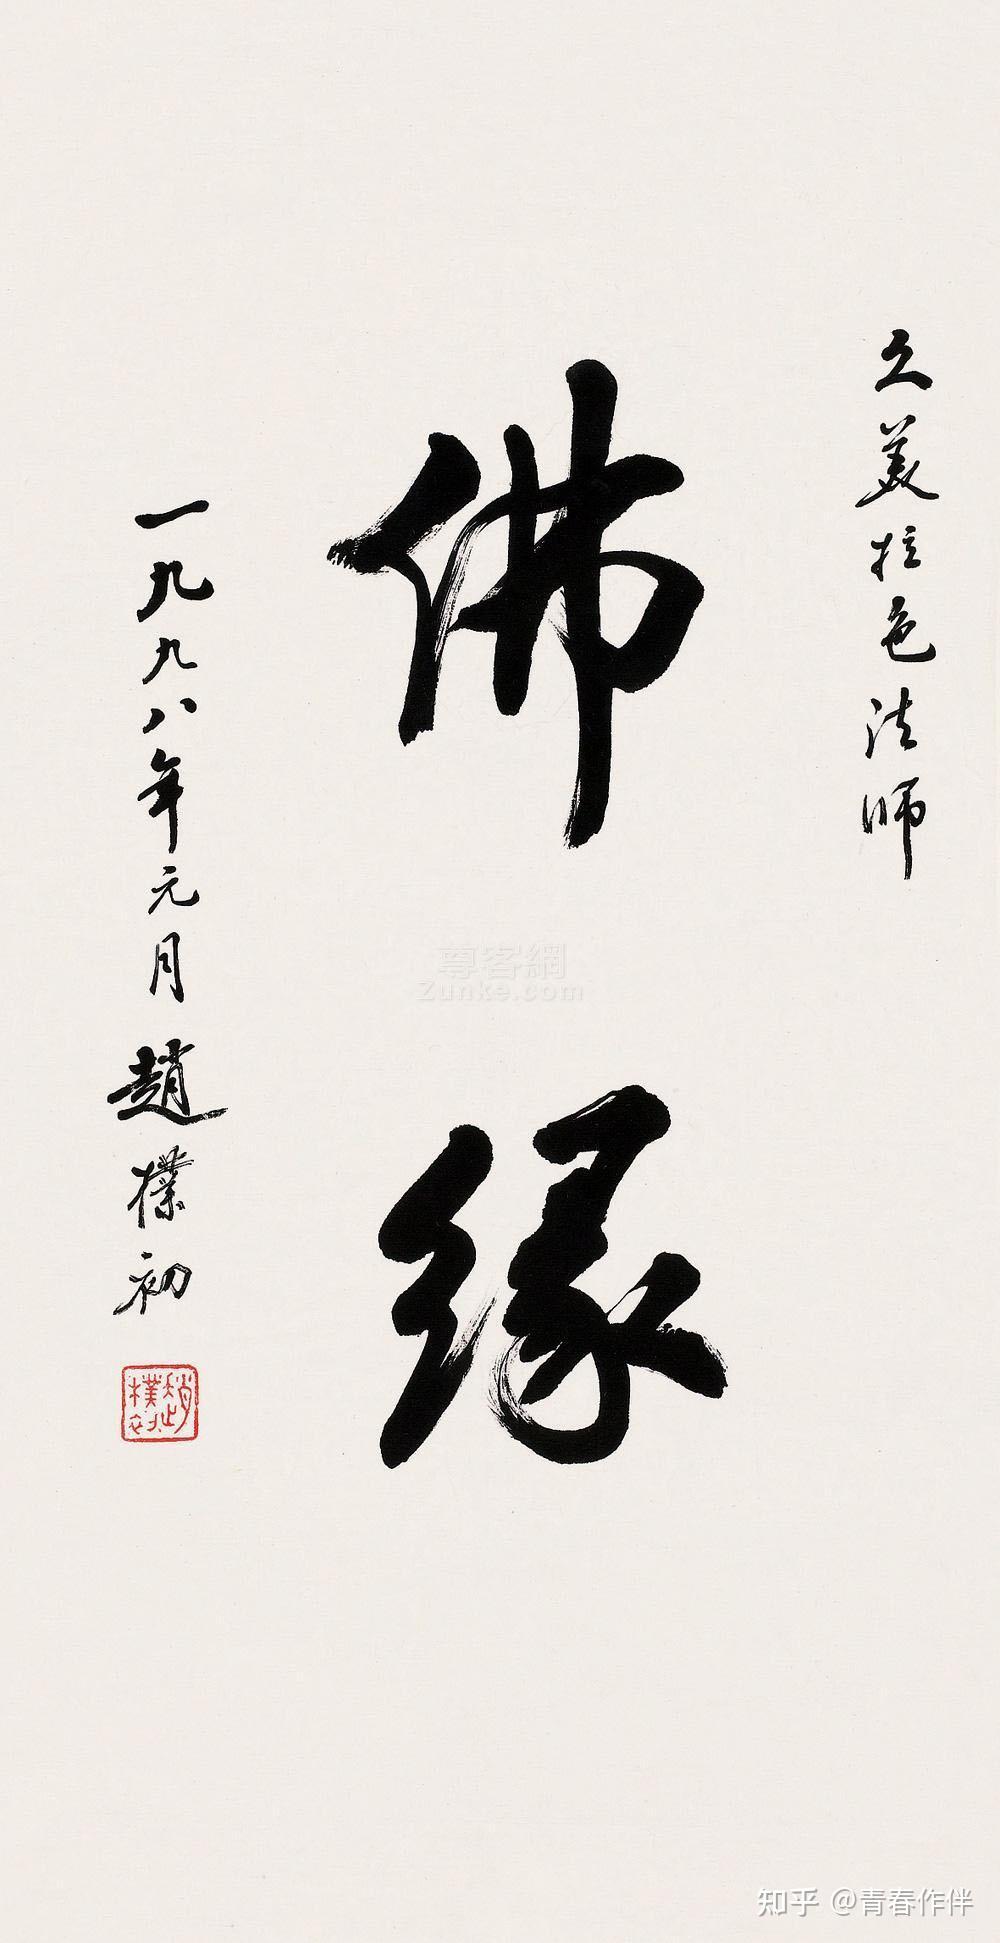 久美拉色法师
佛缘
一九九八年元月 趙樸初
趙樸初
尊客網
Zunke.com
知乎 @青春作伴